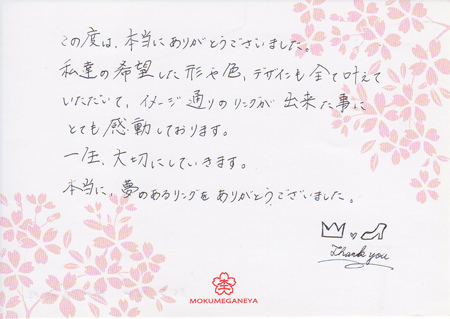 この度は、本当にありがとうございました。
私達の希望した形や色、デザインも全て叶えて
いただいて、イメージ通りのリングが出来た事に
とても感動しております。
一生、大切にしていきます。
本当に、夢のあるリングをありがとうございました。
Thank you
MOKUMEGANEYA